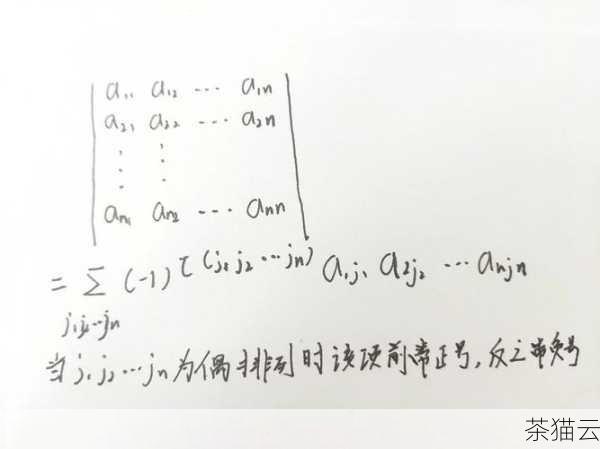 a₁₁ a₁₂ ⋯ a₁ₙ
a₂₁ a₂₂ ⋯ a₂ₙ
⋮ ⋮
aₙ₁ aₙ₂ ⋯ aₙₙ
= Σ (-1) τ(j₁j₂⋯jₙ) a₁j₁ a₂j₂ ⋯ aₙjₙ
j₁j₂⋯jₙ
当j₁j₂⋯jₙ为偶排列时该项前带正号,反之带负号
茶猫云